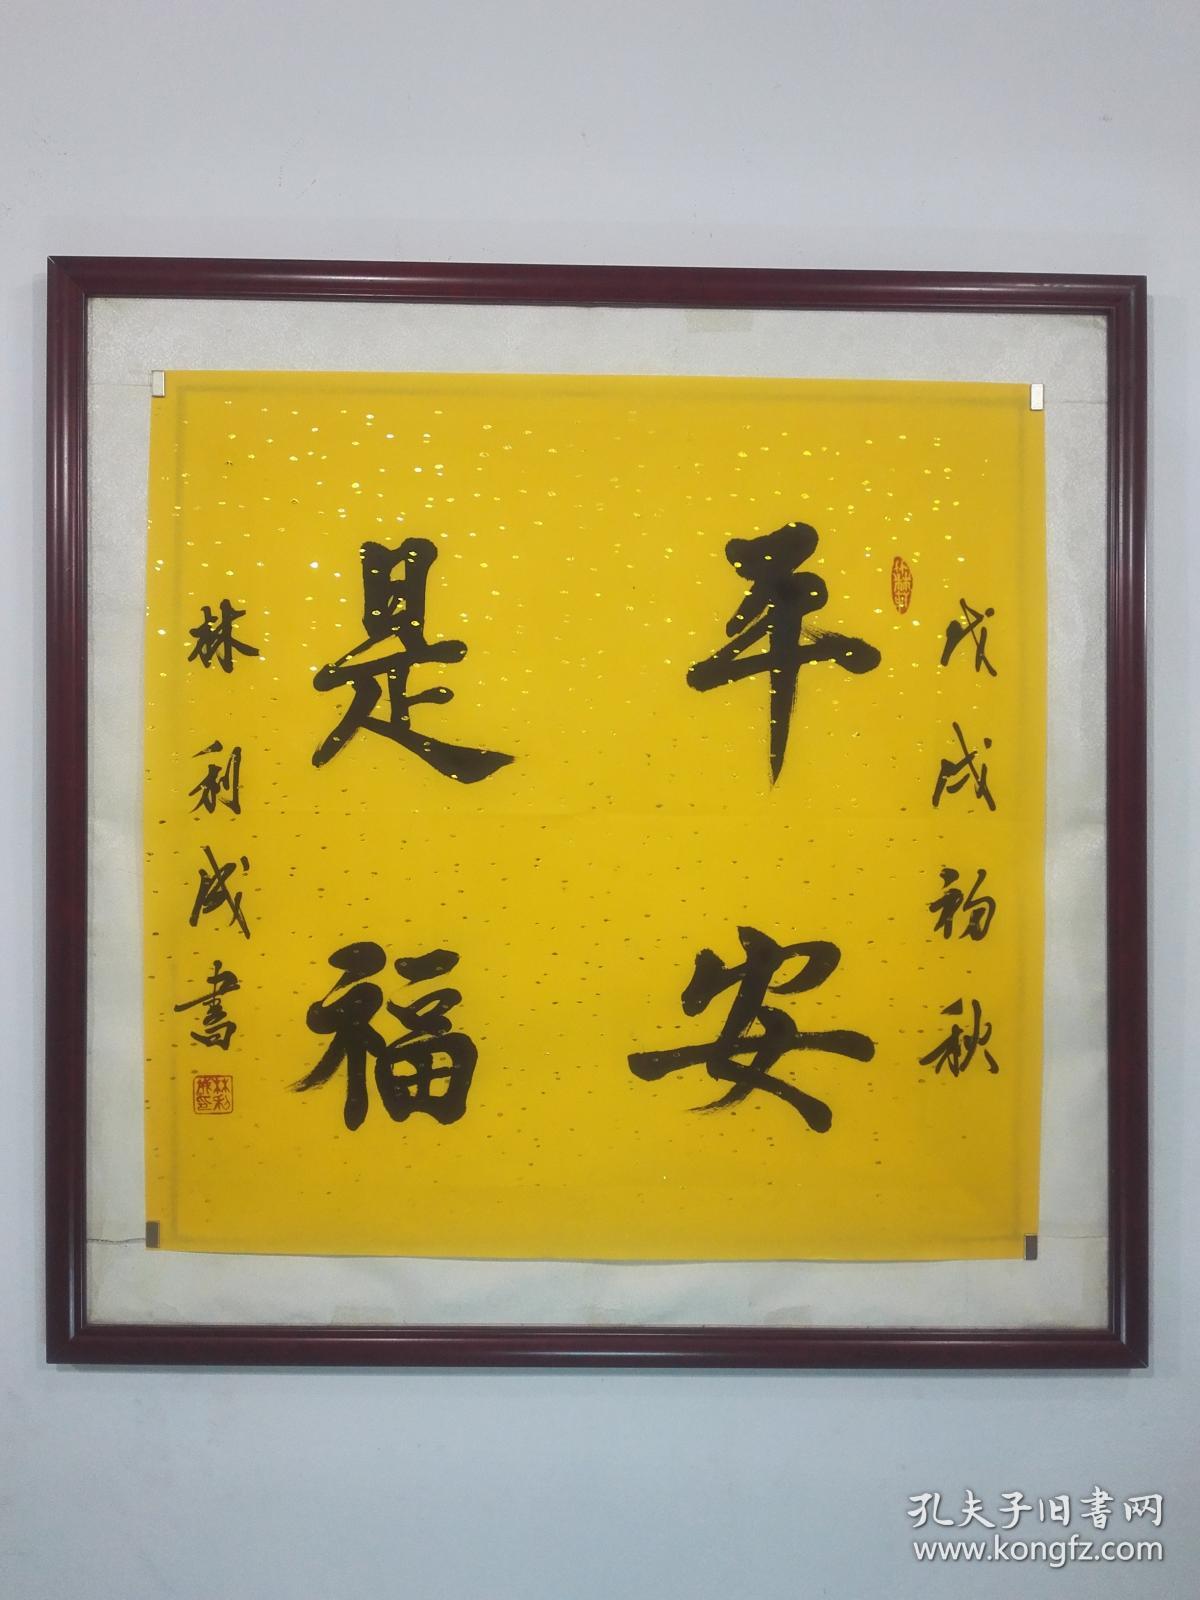 戊戌初秋
平安
是福
林利成書
林利成印
孔夫子旧书网
www.kongfz.com